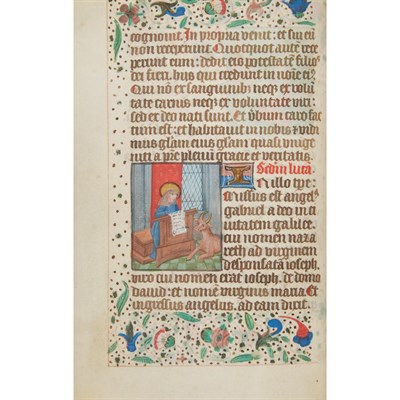 cognouit. In propria venit: et sui eū
non receperunt. Quotquot autē rece
perunt eum: dedit eis potestatē filios
dei fieri. hijs qui credunt in noīe ei9.
Qui nō ex sanguinib neqz ex volu
tate carnis neqz ex voluntate viri:
sed ex deo nati sunt. Et verbum caro fac
tum est: et habitauit in nobis et vidi
mus gloriam eius gloriam quasi vnige
niti a pre plenū gracie et veritatis.
Secdm lucā.
IN illo tpe:
Missus est angel9
gabriel a deo in ci
uitatem galilee.
cui nomen naza
reth ad virginem
desponsatā ioseph.
viro cui nomen erat ioseph. de domo
dauid: et nomē virginis maria. Et
ingressus angelus. ad eam dixit.